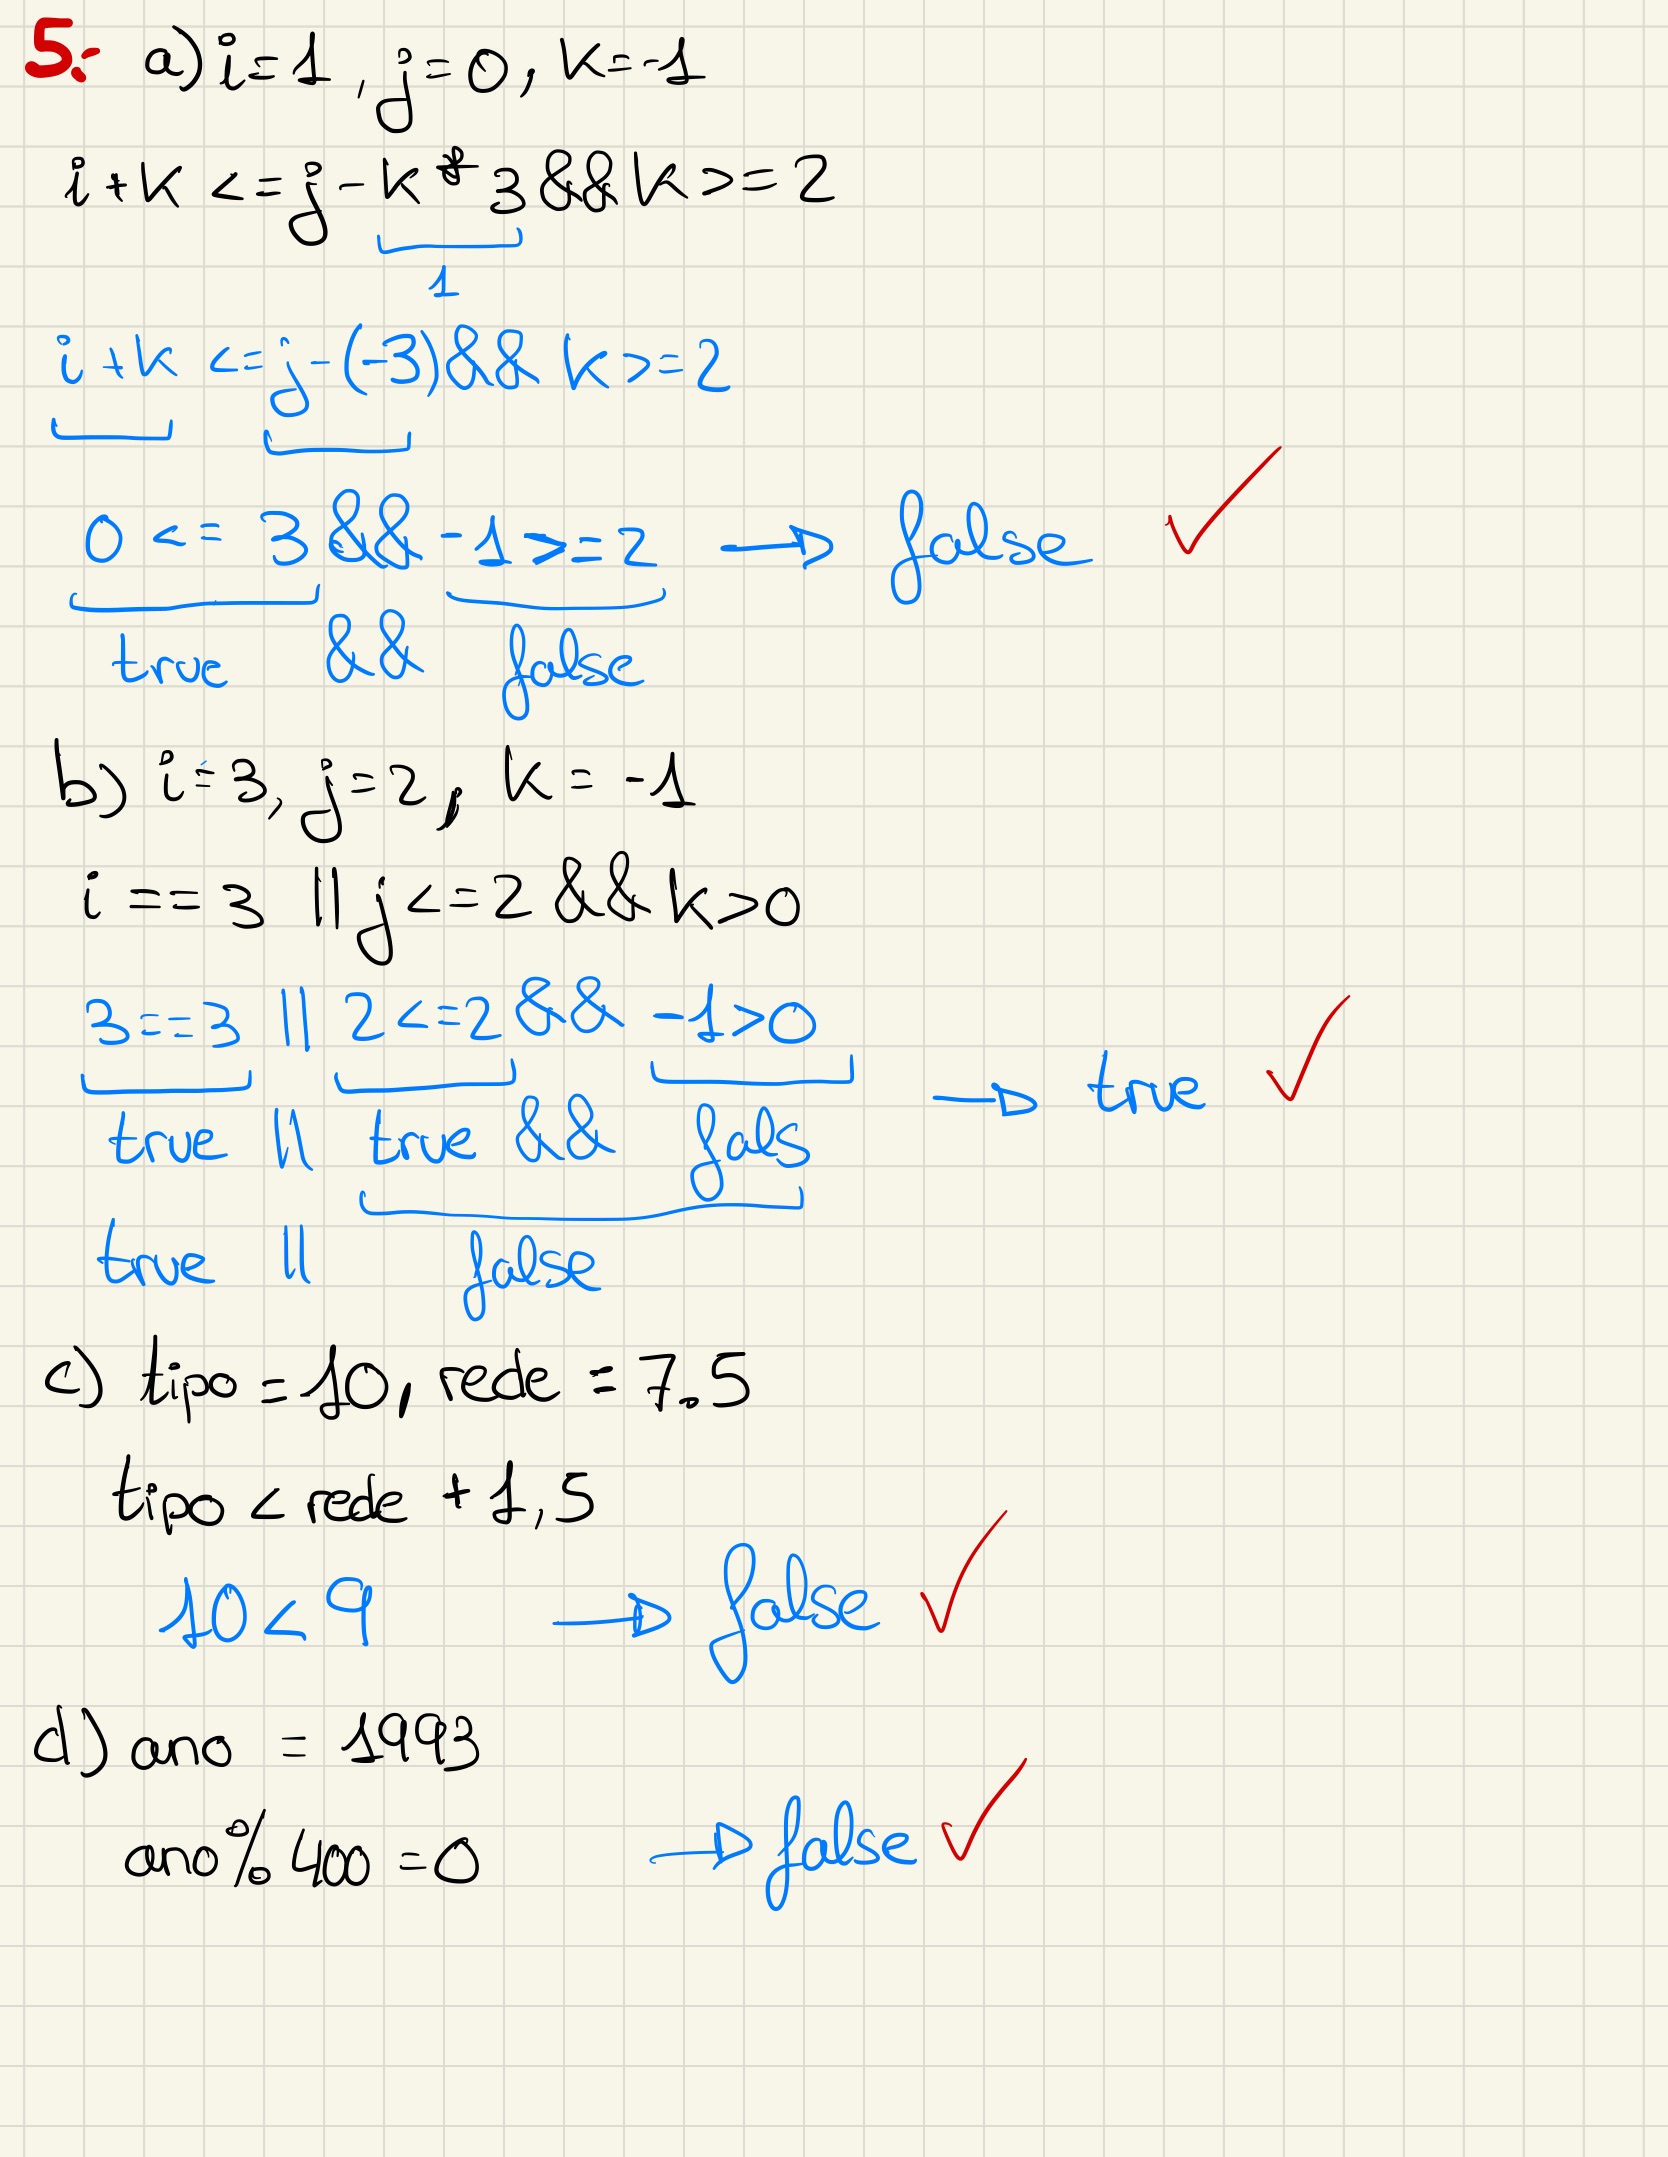 5.- a) i=1, j=0, k=-1
i+k <= j-k*3 && k>=2
1
i+k <= j-(-3) && k>=2
0 <= 3 && -1>=2 → false ✓
true && false
b) i=3, j=2, k=-1
i==3 || j<=2 && k>0
3==3 || 2<=2 && -1>0
→ true ✓
true || true && fals
true || false
c) tipo=10, rede=7.5
tipo < rede + 1,5
10<9 → false ✓
d) ano = 1993
ano%400=0 → false ✓